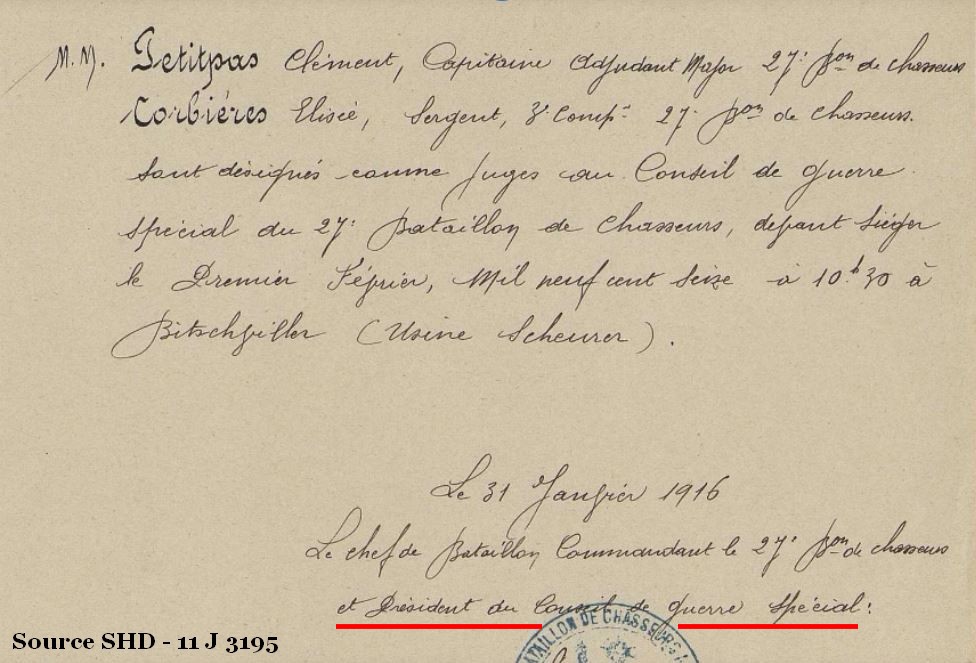 M.M. Petitpas Clément, Capitaine Adjudant Major 27e Bon de chasseurs
Corbiéres Elisée, Sergent, 3e Compie 27e Bon de chasseurs.
sont désignés comme juges au Conseil de guerre
spécial du 27e Bataillon de Chasseurs, devant siéger
le Premier Février, Mil neuf cent seize à 10h30 à
Bitschviller (Usine Scheurer).
Le 31 Janvier 1916
Le chef de Bataillon Commandant le 27e Bon de chasseurs
et Président du Conseil de guerre spécial:
BATAILLON DE CHASSEURS À
Source SHD - 11 J 3195